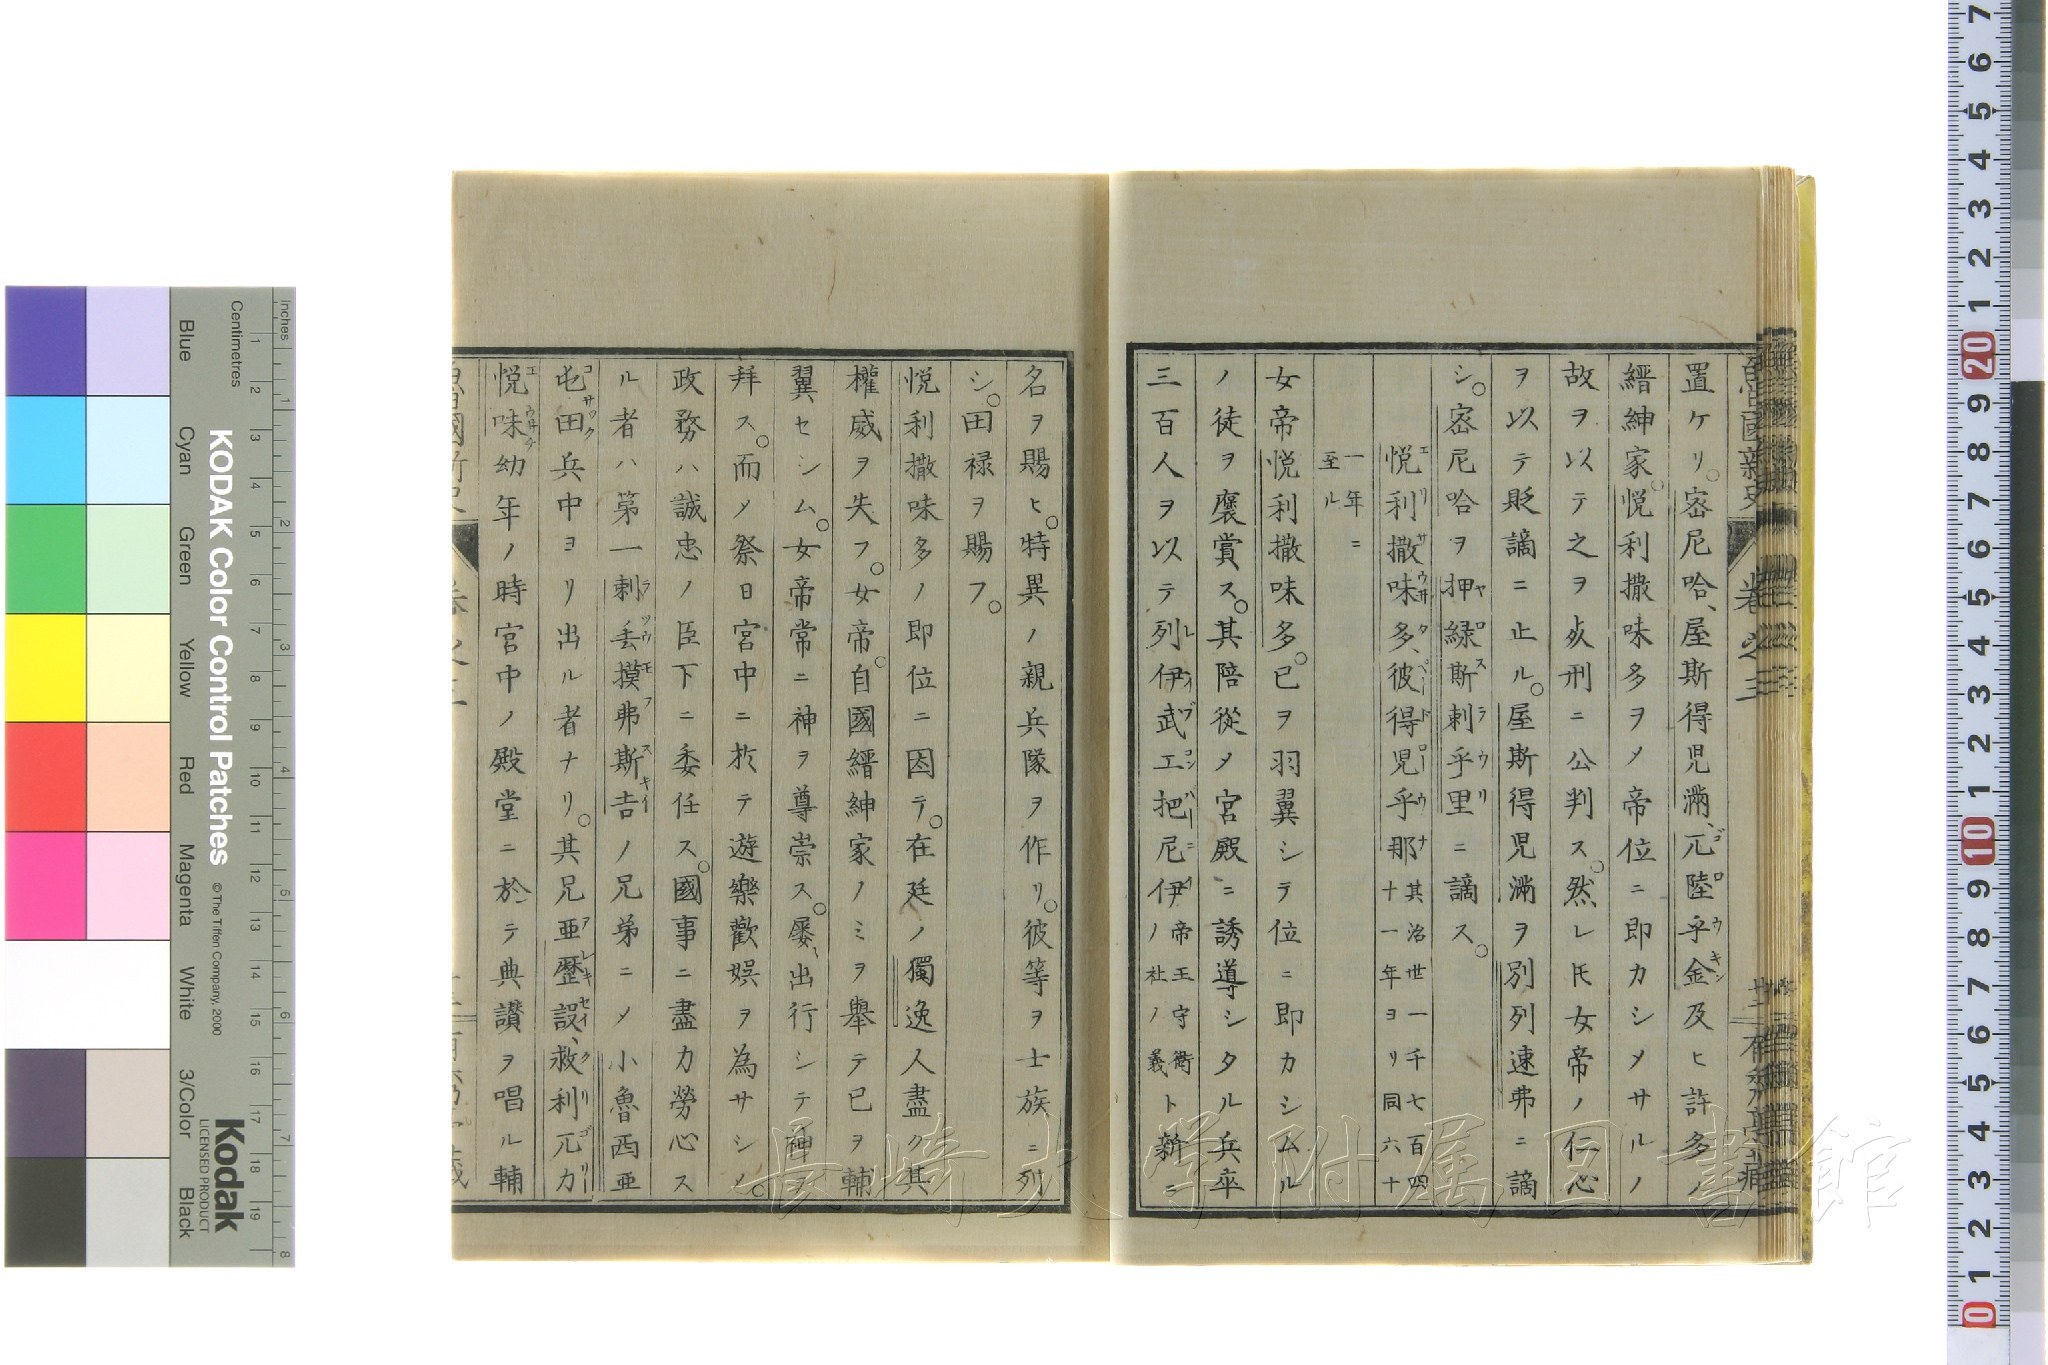 置ケリ。宻尼哈、屋斯得児満、兀陸乎金及ヒ許多ノ
縉紳家。悦利撒味多ヲノ帝位ニ即カシメサルノ
故ヲ以テ之ヲ死刑ニ公判ス。然レ𪜈女帝ノ仁心
ヲ以テ貶謫ニ止ル。屋斯得児満ヲ別列速弗ニ謫
シ。宻尼哈ヲ押緑斯剌乎里ニ謫ス。
悦利撒味多、彼得児乎那 其治世一千七百四十一年ヨリ同六十
一年ニ至ル
女帝悦利撒味多。已ヲ羽翼シテ位ニ即カシムル
ノ徒ヲ褒賞ス。其陪從メ宮殿ニ誘導シタル兵卒
三百人ヲ以テ列伊武工把尼伊ノ 帝王守衛ノ社ノ義 ト新ニ
名ヲ賜ヒ。特異ノ親兵隊ヲ作リ。彼等ヲ士族ニ列
シ。田禄ヲ賜フ。
悦利撒味多ノ即位ニ因テ。在廷ノ獨逸人盡ク其
權威ヲ失フ。女帝。自國縉紳家ノミヲ舉テ已ヲ輔
翼セシム。女帝常ニ神ヲ尊崇ス。屡出行シテ神ヲ
拜ス。而ノ祭日宮中ニ於テ遊樂歡娯ヲ為サシメ。
政務ハ誠忠ノ臣下ニ委任ス。國事ニ盡力勞心ス
ル者ハ第一剌丢摸弗斯吉ノ兄弟ニメ小魯西亜
屯田兵中ヨリ出ル者ナリ。其兄亜歴設、救利兀力
悦味幼年ノ時宮中ノ殿堂ニ於テ典讃ヲ唱ル輔
KODAK Color Control Patches
© The Tiffen Company, 2000
Kodak
LICENSED PRODUCT
Blue
Cyan
Green
Yellow
Red
Magenta
White
3/Color
Black
Centimetres
Inches
長崎大学附属図書館